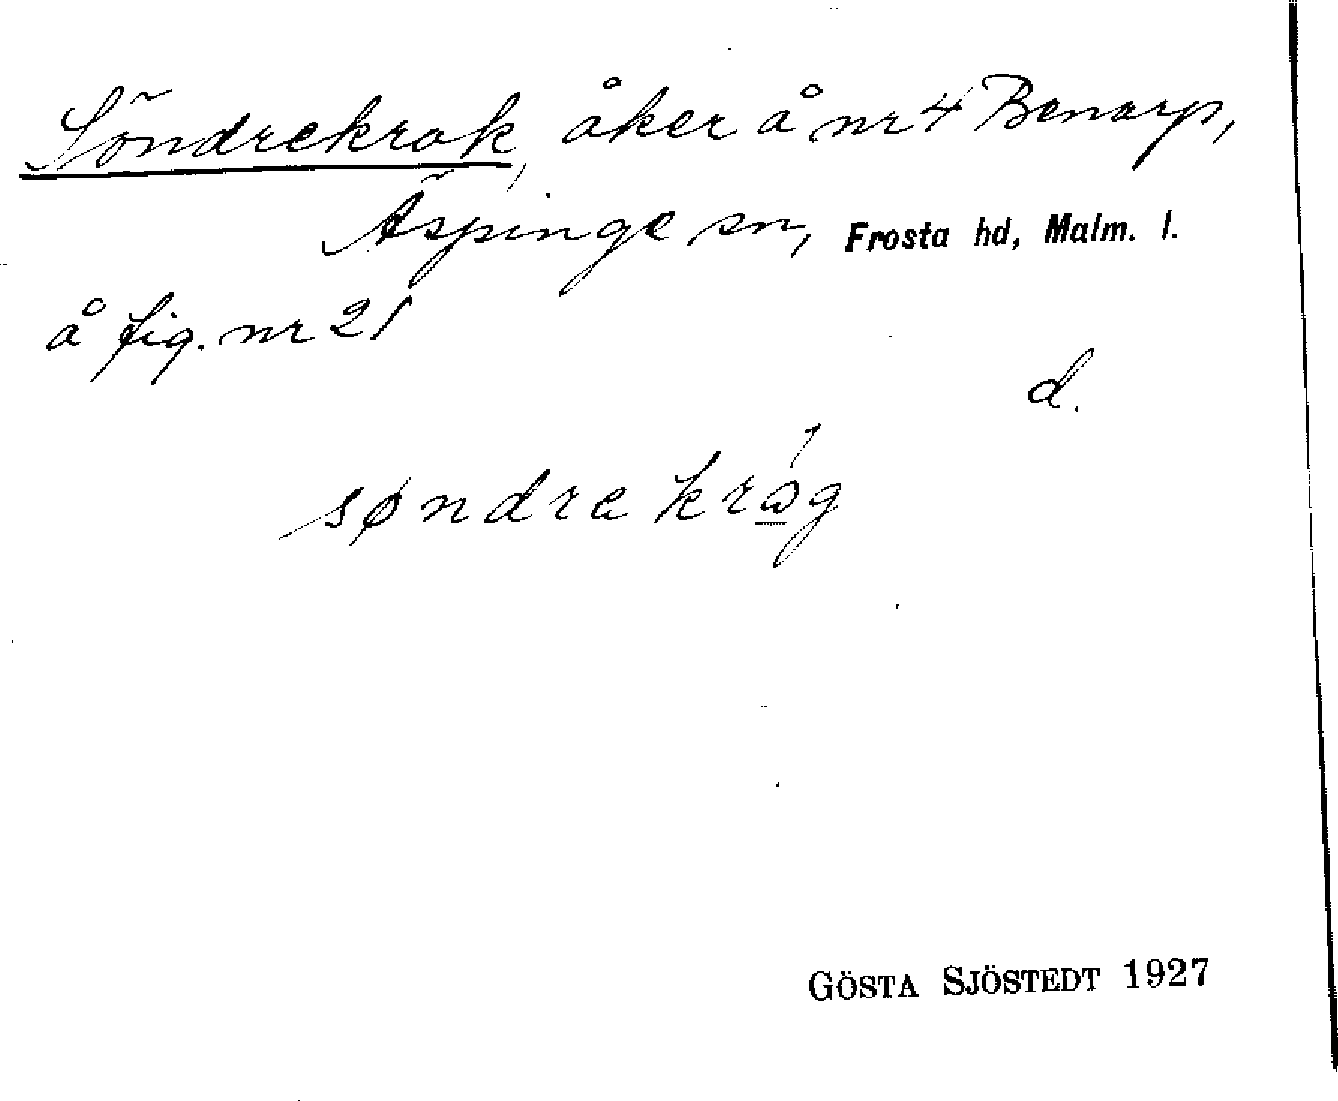 Söndrekrok, åker å nr 4 Benarp,
Äspinge sn, Frosta hd, Malm. l.
å fig. nr 21
d.
søndre kråg
GÖSTA SJÖSTEDT 1927